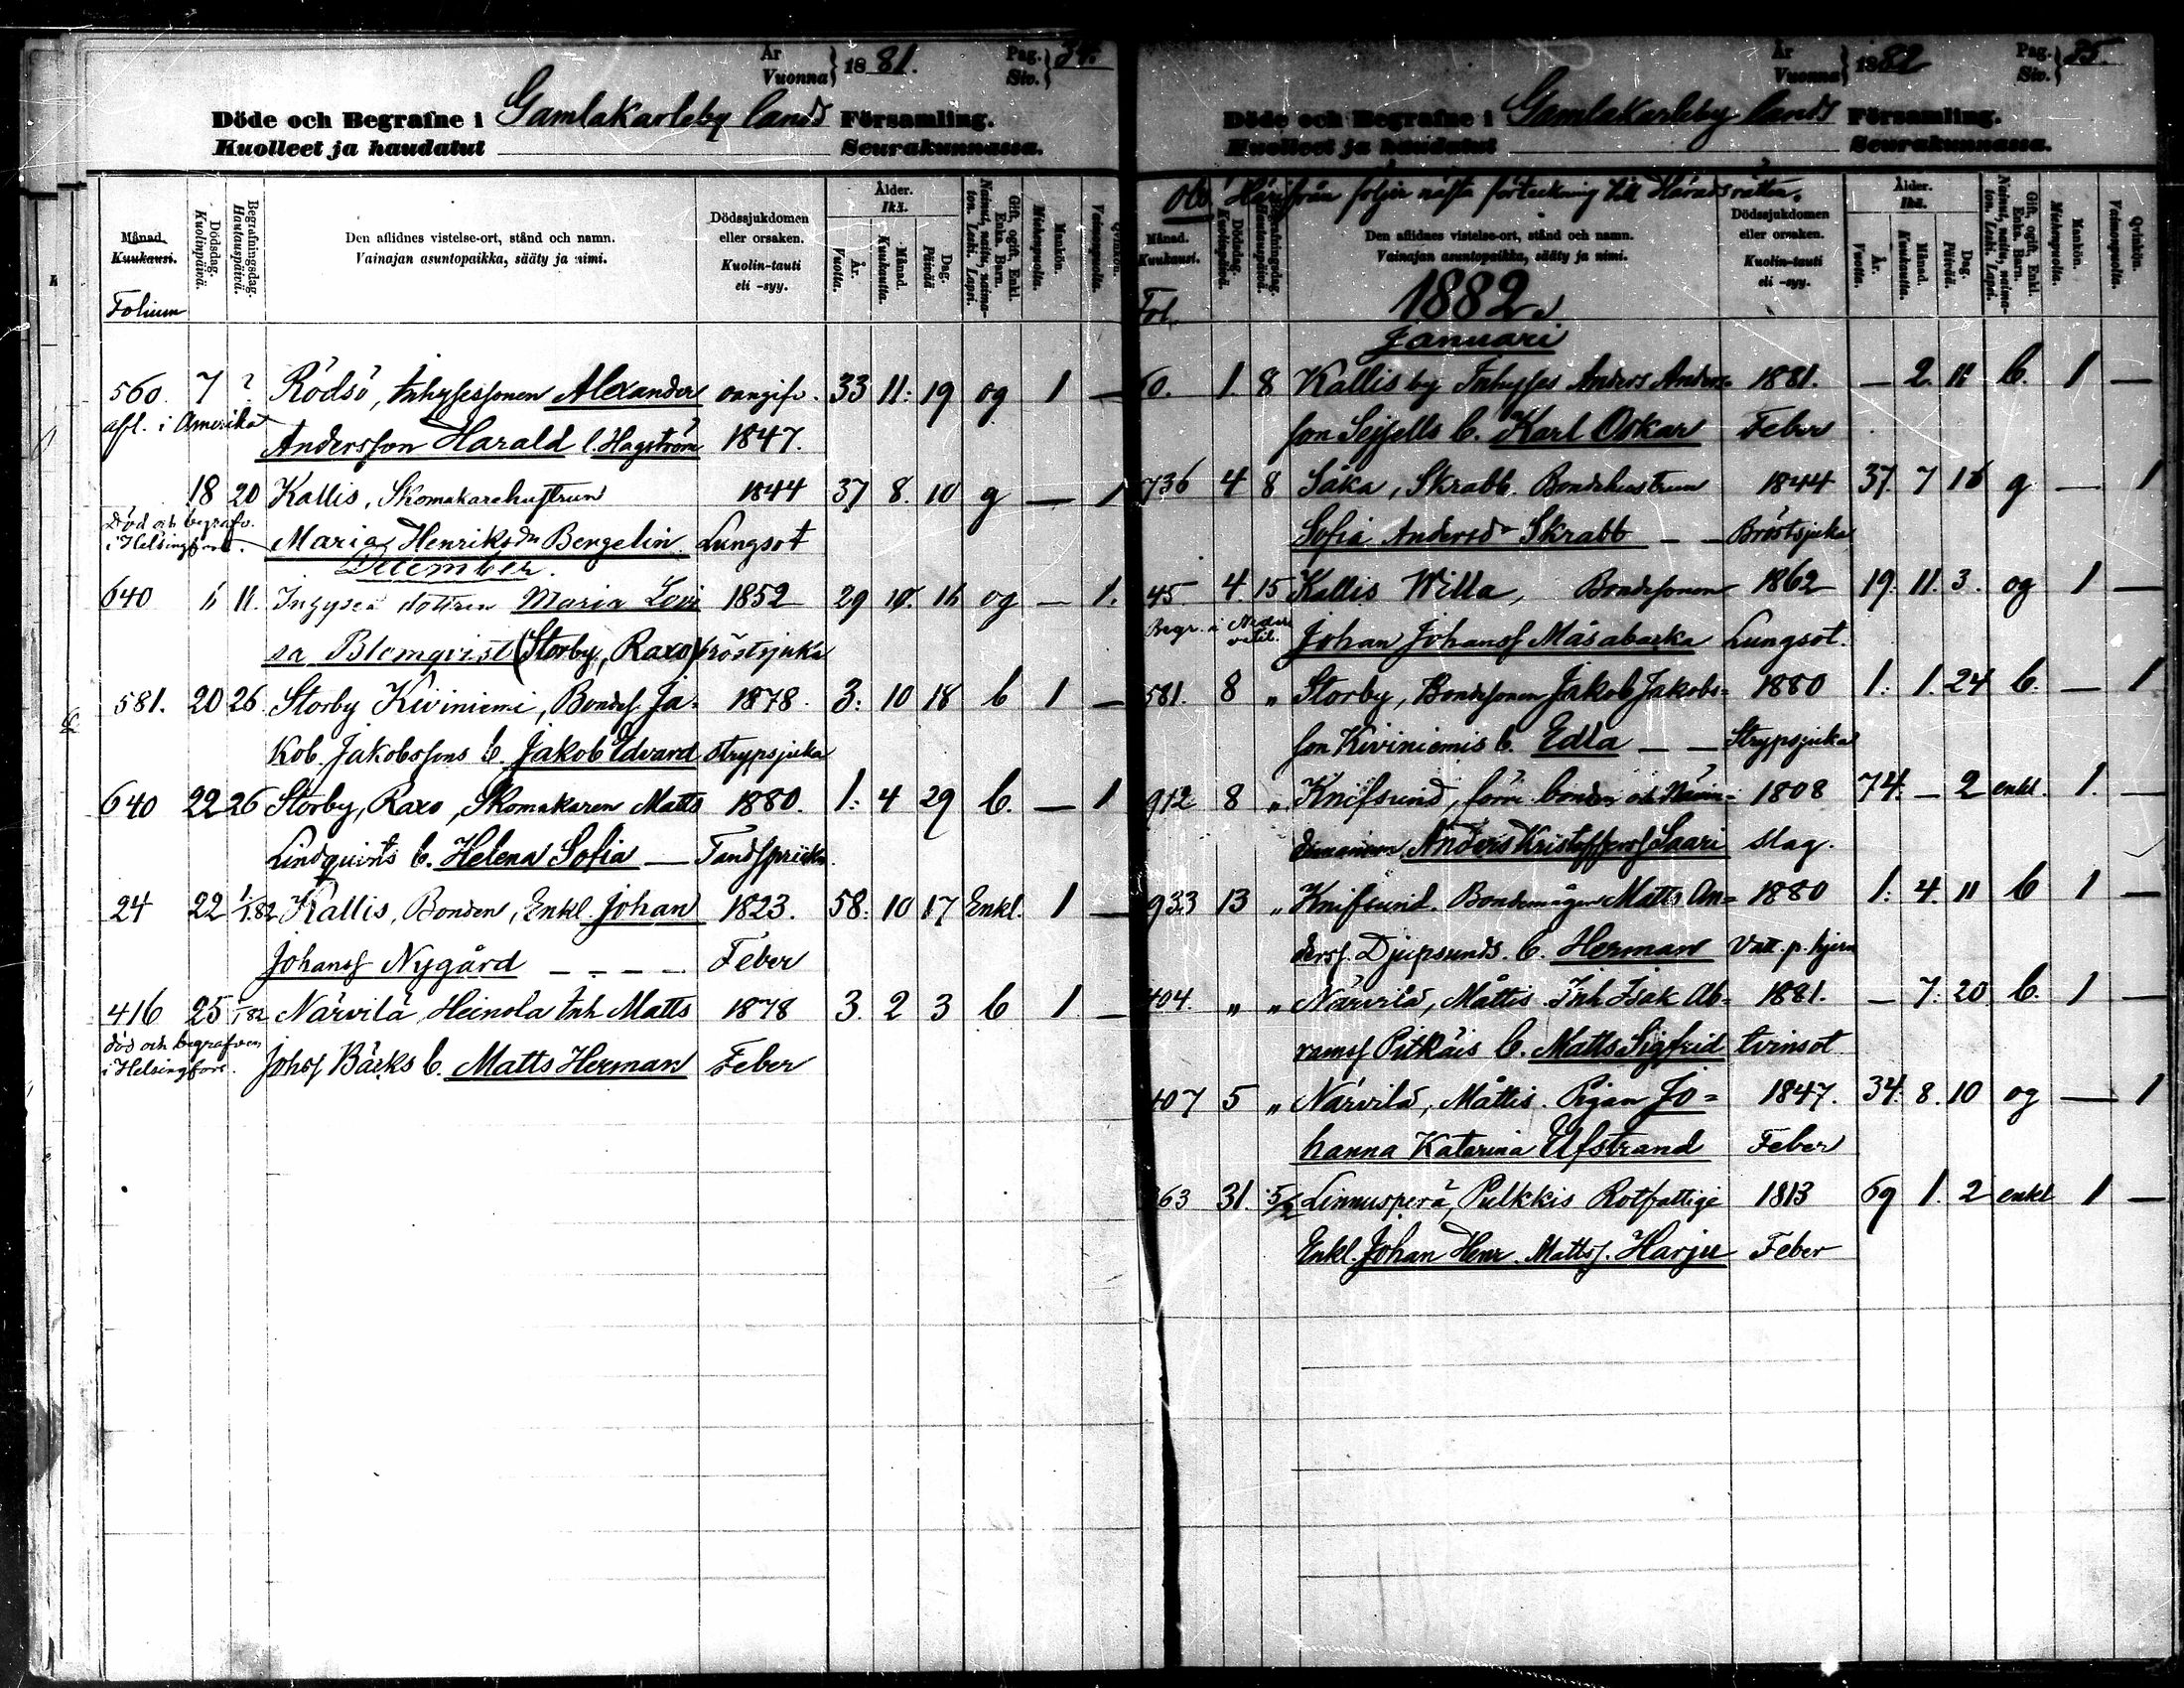 År
Vuonna } 1881.
Pag.
Siv. } 34.
Döde och Begrafne i Gamlakarleby lands Församling.
Kuolleet ja haudatut Seurakunnassa.
Månad.
Kuukausi.
Folium
Dödsdag.
Kuolinpäivä.
Begrafningsdag.
Hautauspäivä.
Den aflidnes vistelse-ort, stånd och namn.
Vainajan asuntopaikka, sääty ja nimi.
Dödssjukdomen
eller orsaken.
Kuolin-tauti
eli -syy.
Ålder.
Ikä.
År.
Vuotta.
Månad.
Kuukautta.
Dag.
Päivää
Gift, ogift, Enkl.
Enka. Barn.
Nainut, naitu, naima-
ton. Leski. Lapsi.
Mankön.
Miehenpuolta.
Qvinkön.
Vaimonpuolta.
560. 7 ? Rödsö, Inhysessonen Alexander oangifv. 33 11: 19 og 1 —
afl. i Amerika
Andersson Harald l. Hagström 1847.
18 20 Kallis, Skomakarehustrun 1844 37 8. 10 g — 1
Död och begrafv.
i Helsingfors. Maria Henriksdr Bergelin Lungsot
December.
640 6 11. Inhyses dottren Maria Lovi 1852 29 10. 16 og — 1.
sa Blomqvist (Storby, Raxo) bröstsjuka
581. 20 26. Storby Kiviniemi, Bondes. Ja= 1878. 3: 10 18 b 1 —
kob Jakobssons b. Jakob Edvard Strypsjuka
640 22 26 Storby, Raxo, Skomakaren Matts 1880. 1: 4 29 b. — 1
Lindqvists b. Helena Sofia — Tandspricka.
24 22 1/1.82 Kallis, Bonden, Enkl. Johan 1823. 58: 10 17 Enkl. 1 —
Johanss Nygård — — — — Feber
416 25 1/1 82 Närvilä, Heinola Inh. Matts 1878 3. 2 3 b 1 —
död och begrafven
i Helsingfors. Johss Bäcks b. Matts Herman Feber
År
Vuonna } 1882
Pag.
Siv. } 35.
Döde och Begrafne i Gamlakarleby lands Församling.
Kuolleet ja haudatut Seurakunnassa.
Obs. Härifrån följer nästa förteckning till Häradsrätten.
Månad.
Kuukausi.
Fol.
Dödsdag.
Kuolinpäivä.
Begrafningsdag.
Hautauspäivä.
Den aflidnes vistelse-ort, stånd och namn.
Vainajan asuntopaikka, sääty ja nimi.
Dödssjukdomen
eller orsaken.
Kuolin-tauti
eli -syy.
Ålder.
Ikä.
År.
Vuotta.
Månad.
Kuukautta.
Dag.
Päivää.
Gift, ogift, Enkl.
Enka. Barn.
Nainut, naitu, naima-
ton. Leski. Lapsi.
Mankön.
Miehenpuolta.
Qvinkön.
Vaimonpuolta.
1882.
Januari
60. 1. 8 Kallis by Inhyses Anders Anders= 1881. — 2. 11 b. 1 —
son Sejfells b. Karl Oskar Feber
736 4 8 Såka, Skrabb. Bondehustrun 1844 37. 7 16 g — 1
Sofia Andersdr Skrabb — — Bröstsjuka
45. 4. 15 Kallis Willa, Bondesonen 1862 19. 11. 3. og 1 —
Begr. i Neder
vetil. Johan Johanss Måsabacka Lungsot.
581. 8 „ Storby, Bondesonen Jakob Jakobs= 1880 1: 1. 24 b. — 1
son Kiviniemis b. Edla — — Strypsjuka
912 8 „ Knifsund, förre bonden och Näm= 1808 74. — 2 enkl. 1. —
Anders Kristofferss Saari slag.
933 13 „ Knifsund. Bondemågen Matts An= 1880 1: 4. 11 b 1 —
derss. Djupsunds. b. Herman Vatt. p. hjern
404. „ „ Närvilä, Måttis. Inh Isak Ab= 1881. — 7. 20 b. 1 —
ramss Pitkäis b. Matts Sigfrid tvinsot
407 5 „ Närvilä, Måttis. Pigan Jo= 1847. 34. 8. 10 og — 1
hanna Katarina Ufstrand Feber
363 31. 5/2 Linnusperä, Pulkkis Rotfattige 1813 69 1. 2 enkl 1 —
Enkl. Johan Henr. Mattss. Harju Feber